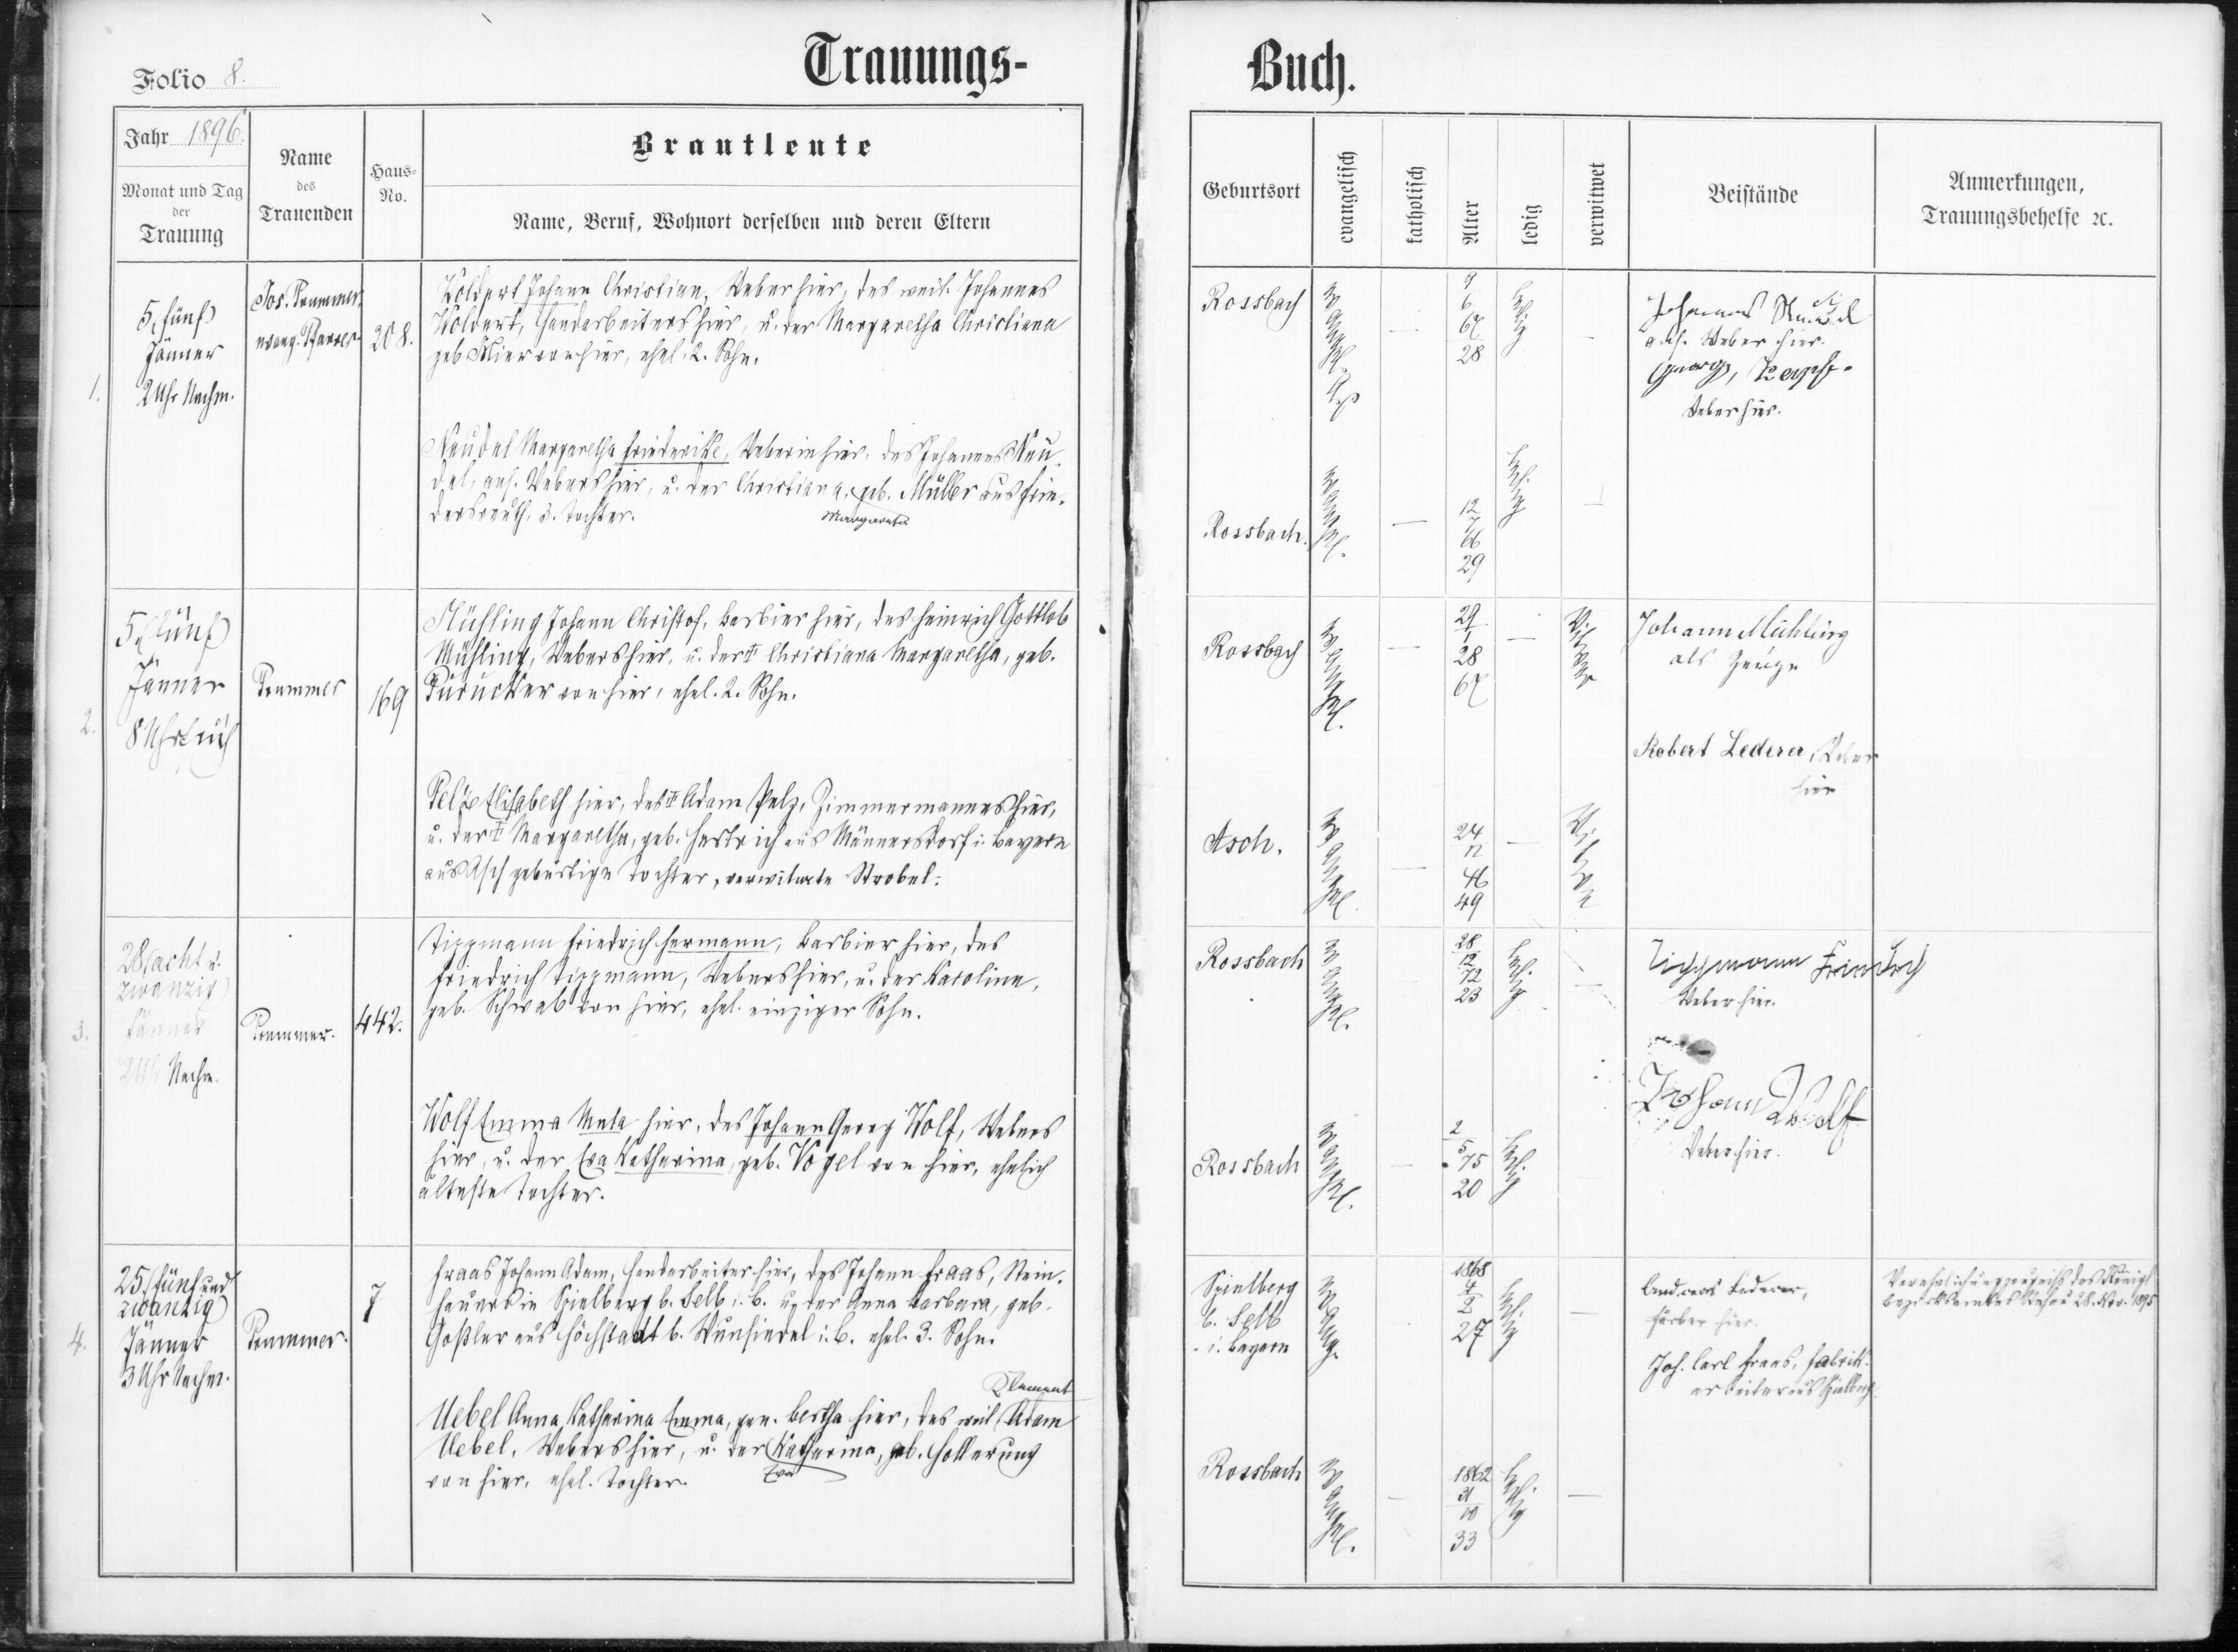 Trauungs-
Buch.
Folio 8.
Jahr 1896.
Monat und Tag
der
Trauung
Name
des
Trauenden
Haus-
No.
Brautleute
Name, Beruf, Wohnort derselben und deren Eltern
Geburtsort
evangelisch
katholisch
Alter
ledig
verwitwet
Beistände
Anmerkungen,
Trauungsbehelfe ꝛc.
1.
5. (fünf)
Jänner
2 Uhr Nachm.
Jos. Pommer,
evang. Pfarrer.
208.
Woldert Johann Christian, Weber hier, des weil. Johannes
Woldert, Handarbeiters hier, u. der Margaretha Christiana
geb. Klier von hier, ehel. 2. Sohn.
Rossbach
evangel.
9
6
67
28
ledig
Johannes
ans. Weber hier.
Georg,
Weber hier.
Neudel Margaretha Friederike, Weberin hier, des Johannes Neu-
del, ans. Webers hier, u. der Christiana, geb. Müller aus Frie-
dersreuth, 3. Tochter.
Margareta
Rossbach.
evangel.
12
7
66
29
ledig
2.
5. (fünf)
Jänner
8 Uhr früh
Pommer
169
Mühling Johann Christof, Barbier hier, des Heinrich Gottlob
Mühling, Webers hier, u. der † Christiana Margaretha, geb.
Purucker von hier, ehel. 2. Sohn.
Rossbach
evangel.
29
1
28
67
Witwer
Johann Mühling
als Zeuge
Robert Lederer, Weber
hier
Pelz Elisabeth hier, des † Adam Pelz, Zimmermannes hier,
u. der † Margaretha, geb. Hertrich aus Männersdorf i. Bayern
aus Asch gebürtige Tochter, verwitwete Strobel.
Asch.
evangel.
24
11
46
49
Witwe
3.
28 (acht u.
zwanzig)
Jänner
2 Uhr Nachm.
Pommer.
442.
Tippmann Friedrich Hermann, Barbier hier, des
Friedrich Tippmann, Webers hier, u. der Karoline,
geb. Schwab von hier, ehel. einziger Sohn.
Rossbach
evangel.
28
12
72
23
ledig
Tippmann Friedrich
Weber hier.
Johann Wolf
Weber hier.
Wolf Emma Meta hier, des Johann Georg Wolf, Webers
hier, u. der Eva Katharina, geb. Vogel von hier, ehelich
älteste Tochter.
Rossbach
evangel.
2
5
75
20
ledig
4.
25. (fünf und
zwanzig)
Jänner
3 Uhr Nachm.
Pommer.
7
Fraas Johann Adam, Handarbeiter hier, des Johann Fraas, Stein-
hauers in Spielberg b. Selb i. B. u. der Anna Barbara, geb.
Goßler aus Höchstadt b. Wunsiedel i. B. ehel. 3. Sohn.
Spielberg
b. Selb
i. Bayern
evang.
1868
4
2
27
ledig
Andreas Lederer,
Färber hier.
Joh. Carl Fraas, Fabriks-
arbeiter aus Spielberg.
Verehelichungszeugnis des Königl.
Bezirksamtes Rehau 28. Nov. 1895
Klement
Uebel Anna Katharina Emma, gen. Bertha hier, des weil. Adam
Uebel, Webers hier, u. der Katharina, geb. Hollerung
Eva
von hier, ehel. Tochter.
Rossbach
evangel.
1862
31
10
33
ledig